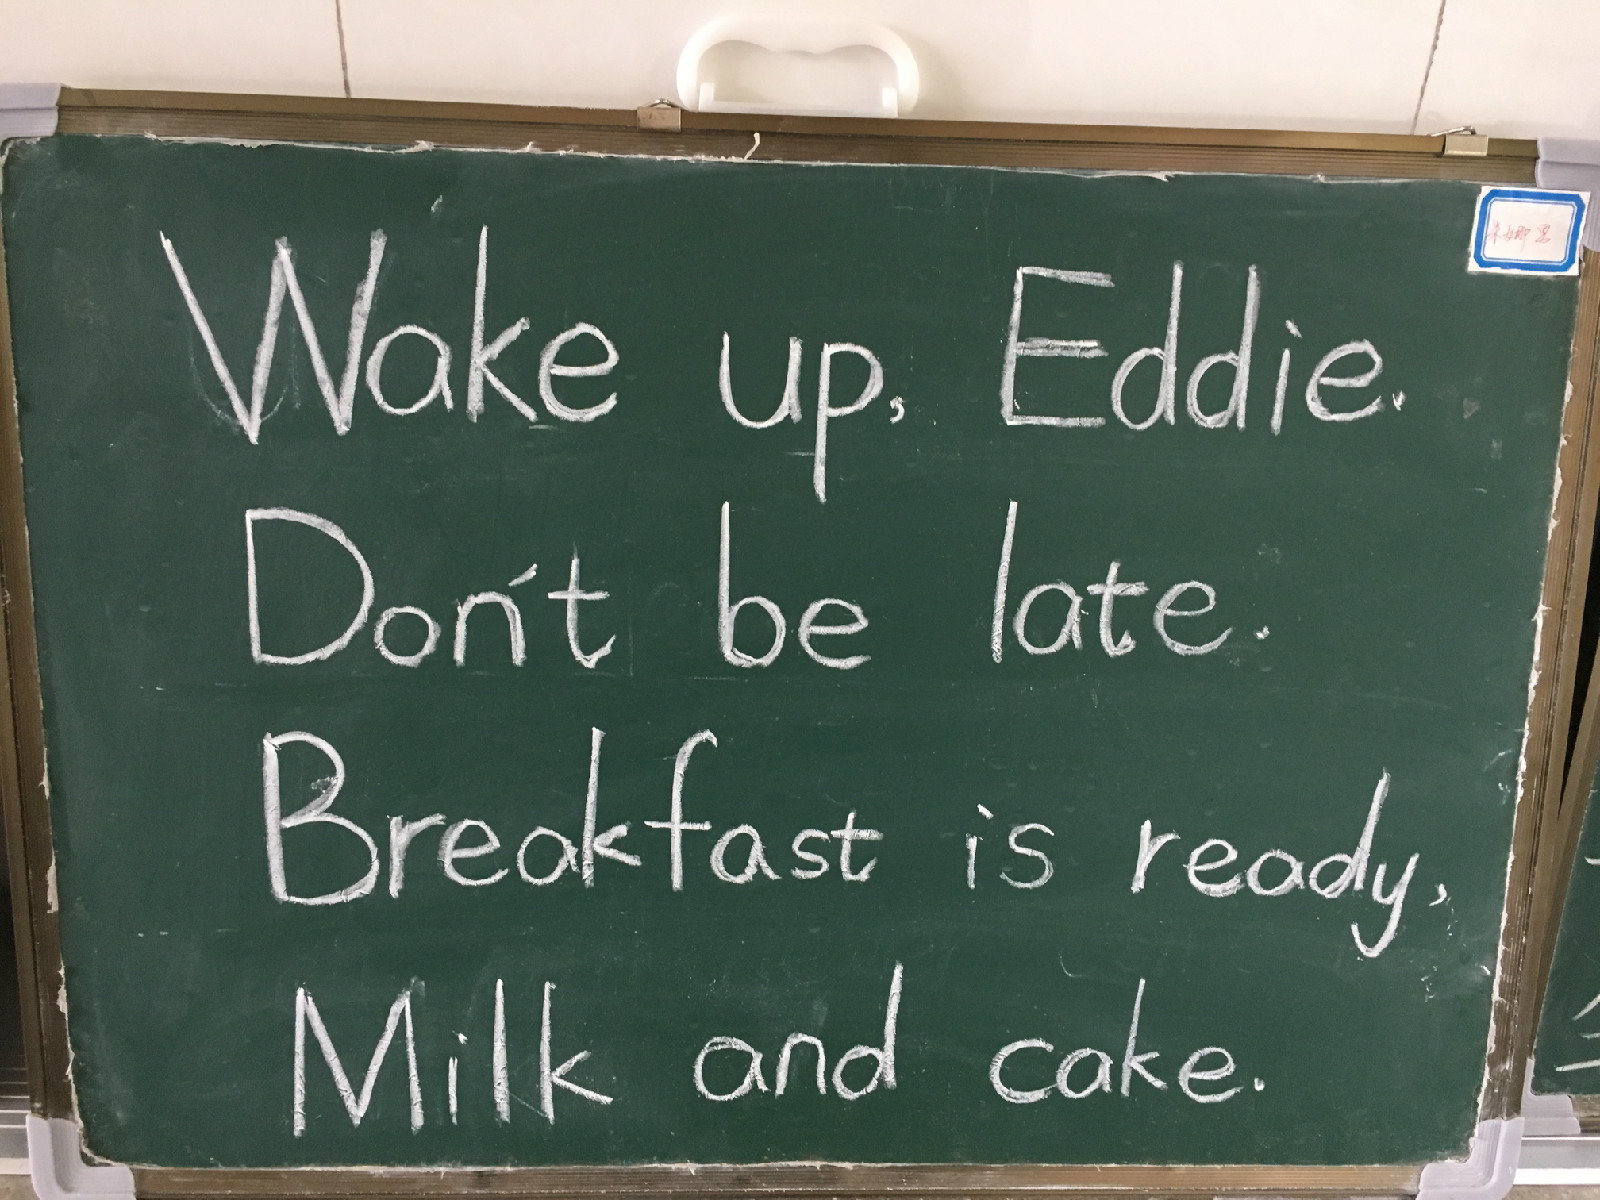 Wake up, Eddie.
Don't be late.
Breakfast is ready,
Milk and cake.